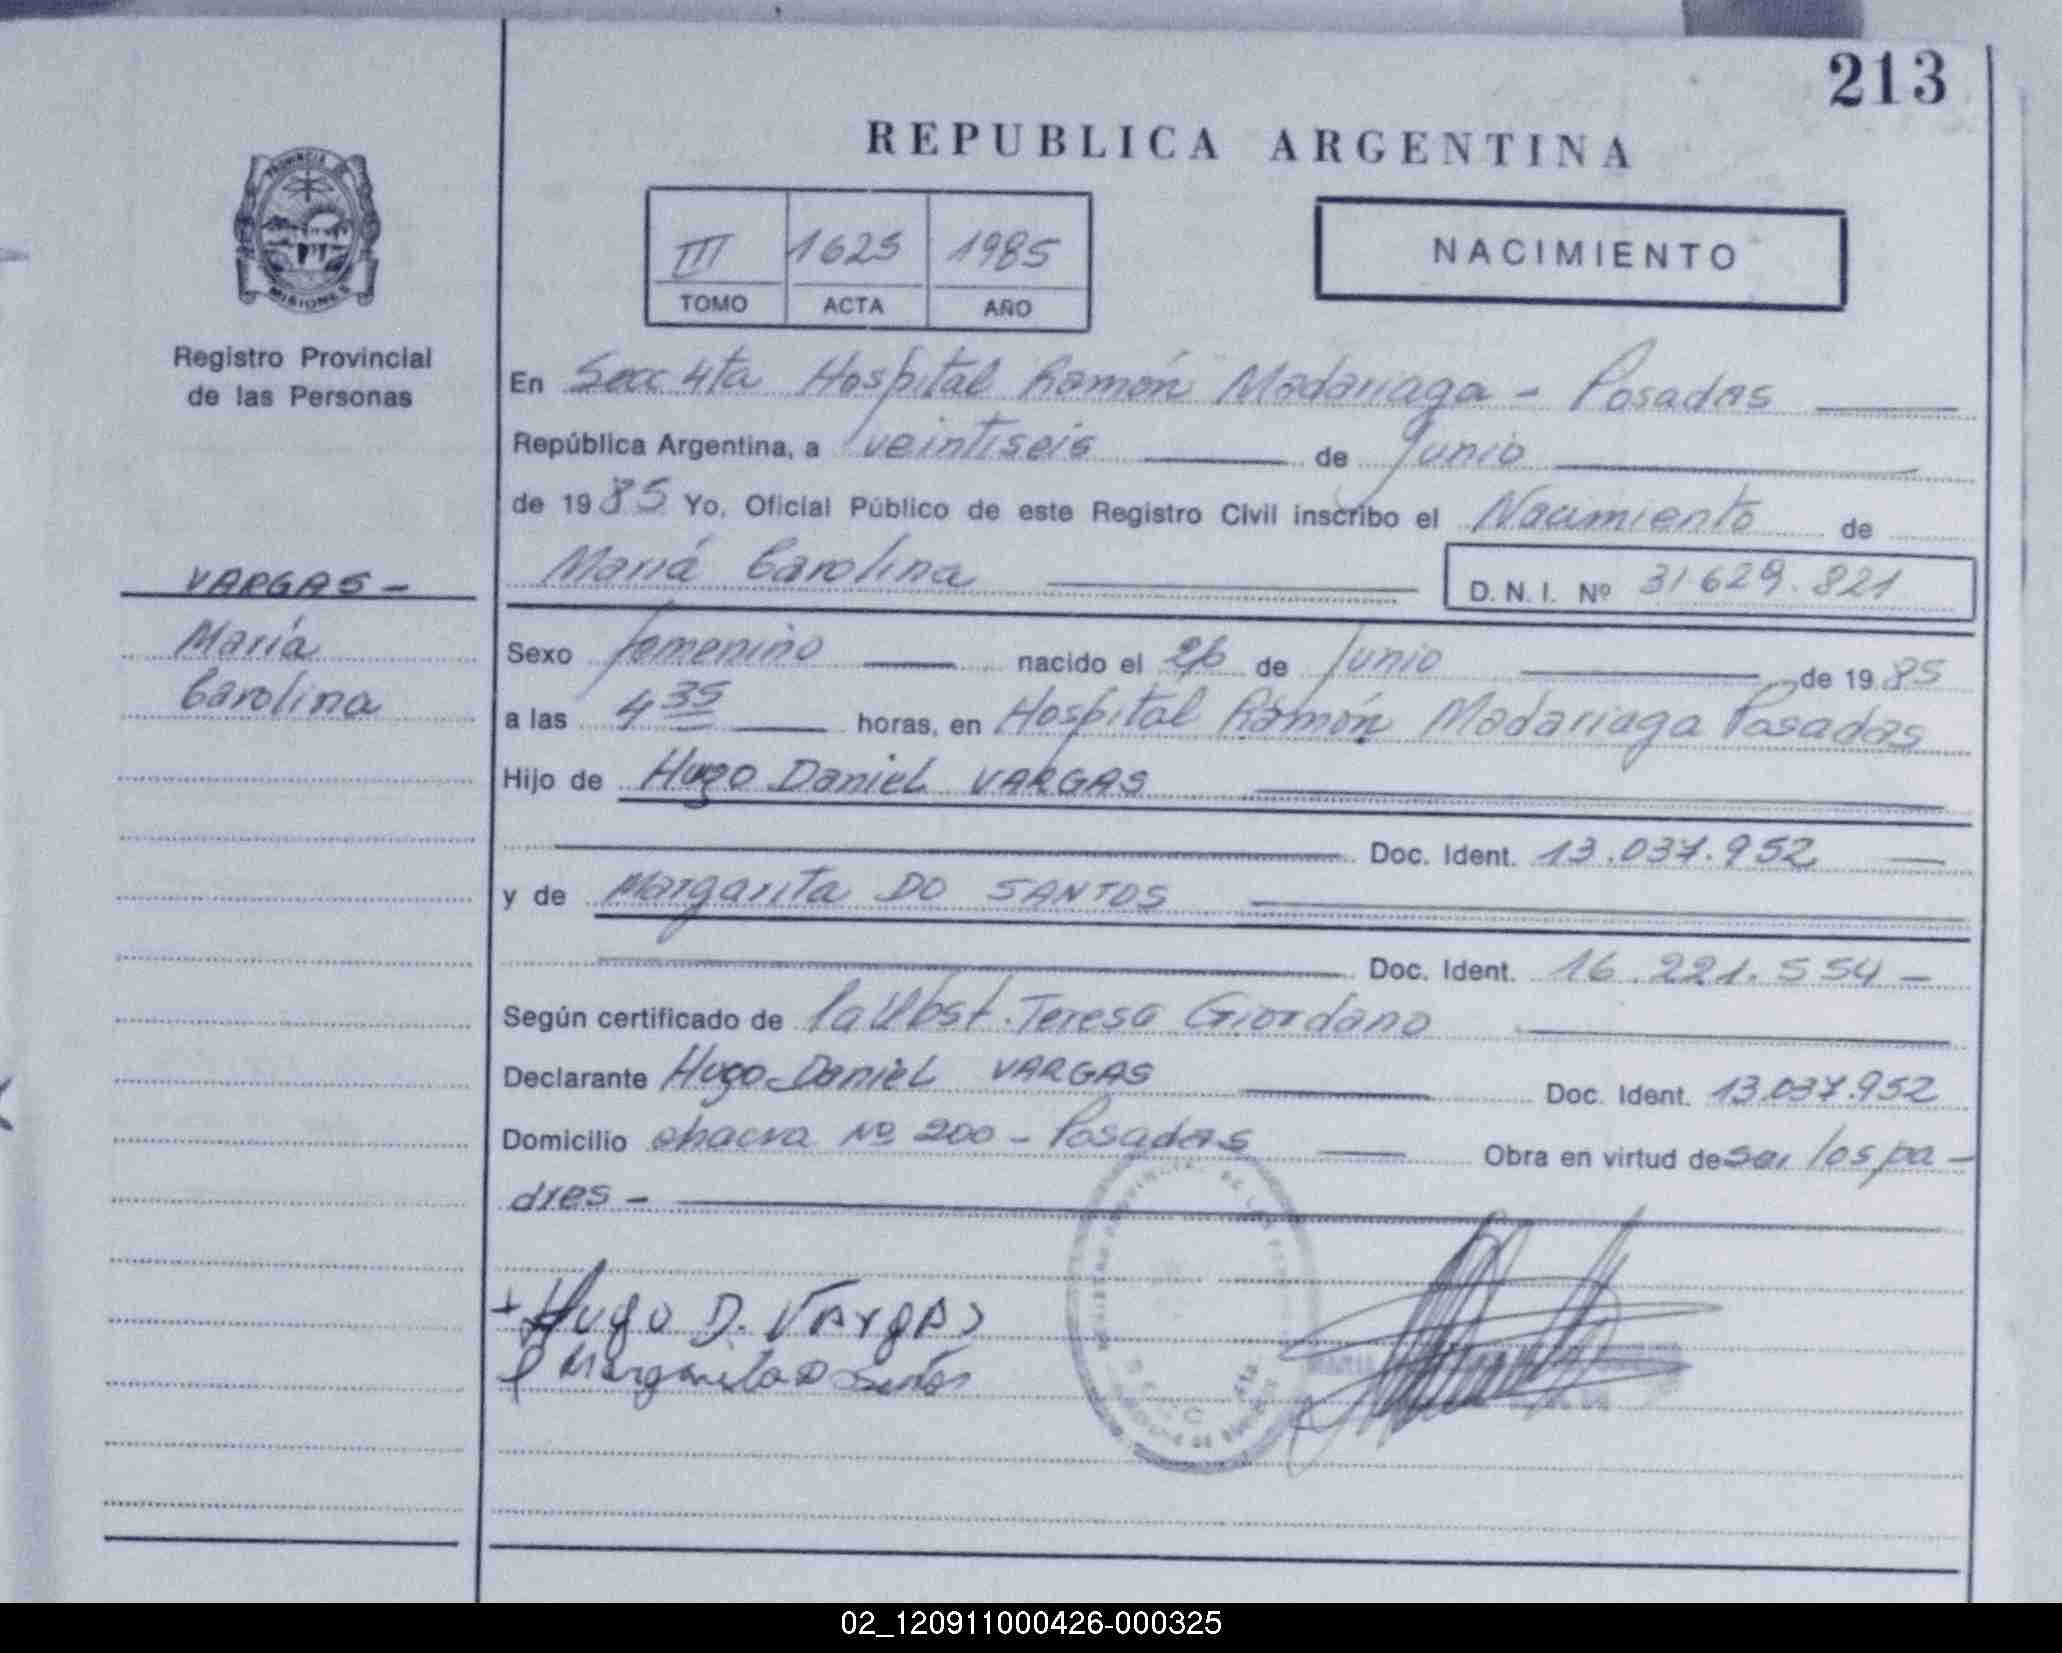 213
REPUBLICA ARGENTINA
PROVINCIA DE
MISIONES
III 1625 1985
TOMO ACTA AÑO
NACIMIENTO
Registro Provincial
de las Personas
En Secc 4ta Hospital Ramón Madariaga - Posadas
República Argentina, a veintiseis de junio
de 1985 Yo, Oficial Público de este Registro Civil inscribo el Nacimiento de
María Carolina D. N. I. Nº 31.629.821
VARGAS -
María
Carolina
Sexo femenino nacido el 26 de Junio de 1985
a las 4 35 horas, en Hospital Ramón Madariaga Posadas
Hijo de Hugo Daniel VARGAS
Doc. Ident. 13.037.952
y de Margarita DO SANTOS
Doc. Ident. 16.221.554 -
Según certificado de la Obst. Teresa Giordano
Declarante Hugo Daniel VARGAS Doc. Ident. 13.037.952
Domicilio chacra Nº 200 - Posadas Obra en virtud de ser los pa-
dres -
Hugo D. VArgAs
Margarita D Santos
02_120911000426-000325